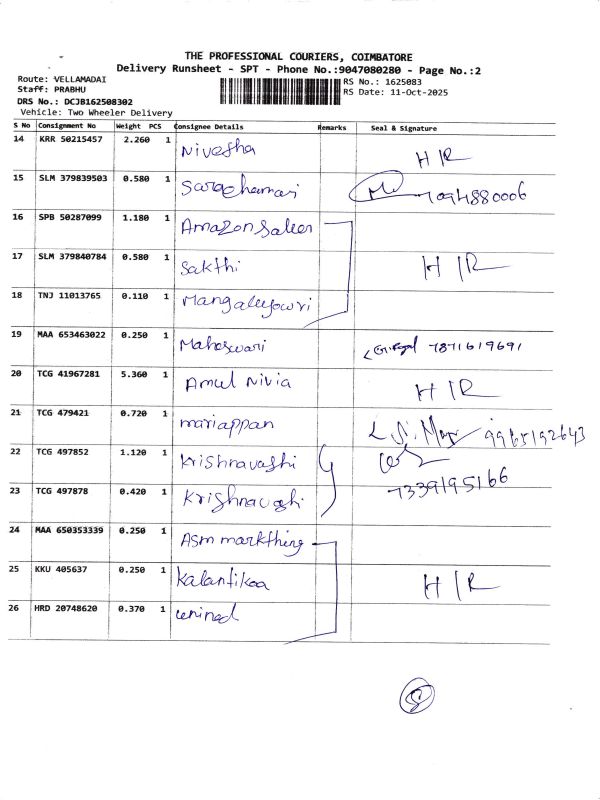 THE PROFESSIONAL COURIERS, COIMBATORE
Delivery Runsheet - SPT - Phone No.:9047080280 - Page No.:2
Route: VELLAMADAI
Staff: PRABHU
DRS No.: DCJB162508302
Vehicle: Two Wheeler Delivery
RS No.: 1625083
RS Date: 11-Oct-2025
S No Consignment No Weight PCS Consignee Details Remarks Seal & Signature
14 KRR 50215457 2.260 1 Nivestha H/R
15 SLM 379839503 0.580 1 7094880006
16 SPB 50287099 1.180 1 Amazon Saler
17 SLM 379840784 0.580 1 Sakthi H/R
18 TNJ 11013765 0.110 1 Mangaleyowri
19 MAA 653463022 0.250 1 Maheswari 7871619691
20 TCG 41967281 5.360 1 Amul Nivia H/R
21 TCG 479421 0.720 1 mariappan 9965192643
22 TCG 497852 1.120 1 Krishnavashi
23 TCG 497878 0.420 1 7339195166
24 MAA 650353339 0.250 1 Asm markthing
25 KKU 405637 0.250 1 H/R
26 HRD 20748620 0.370 1